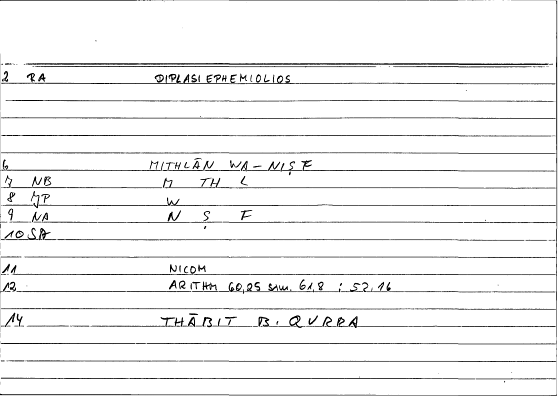 2 RA DIPLASIEPHEMIOLIOS
6 MITHLĀN WA-NIṢF
7 NB M TH L
8 JP W
9 NA N Ṣ F
10 SA
11 NICOM
12 ARITHM 60,25 sim. 61,8 ; 52,16
14 THĀBIT B. QURRA